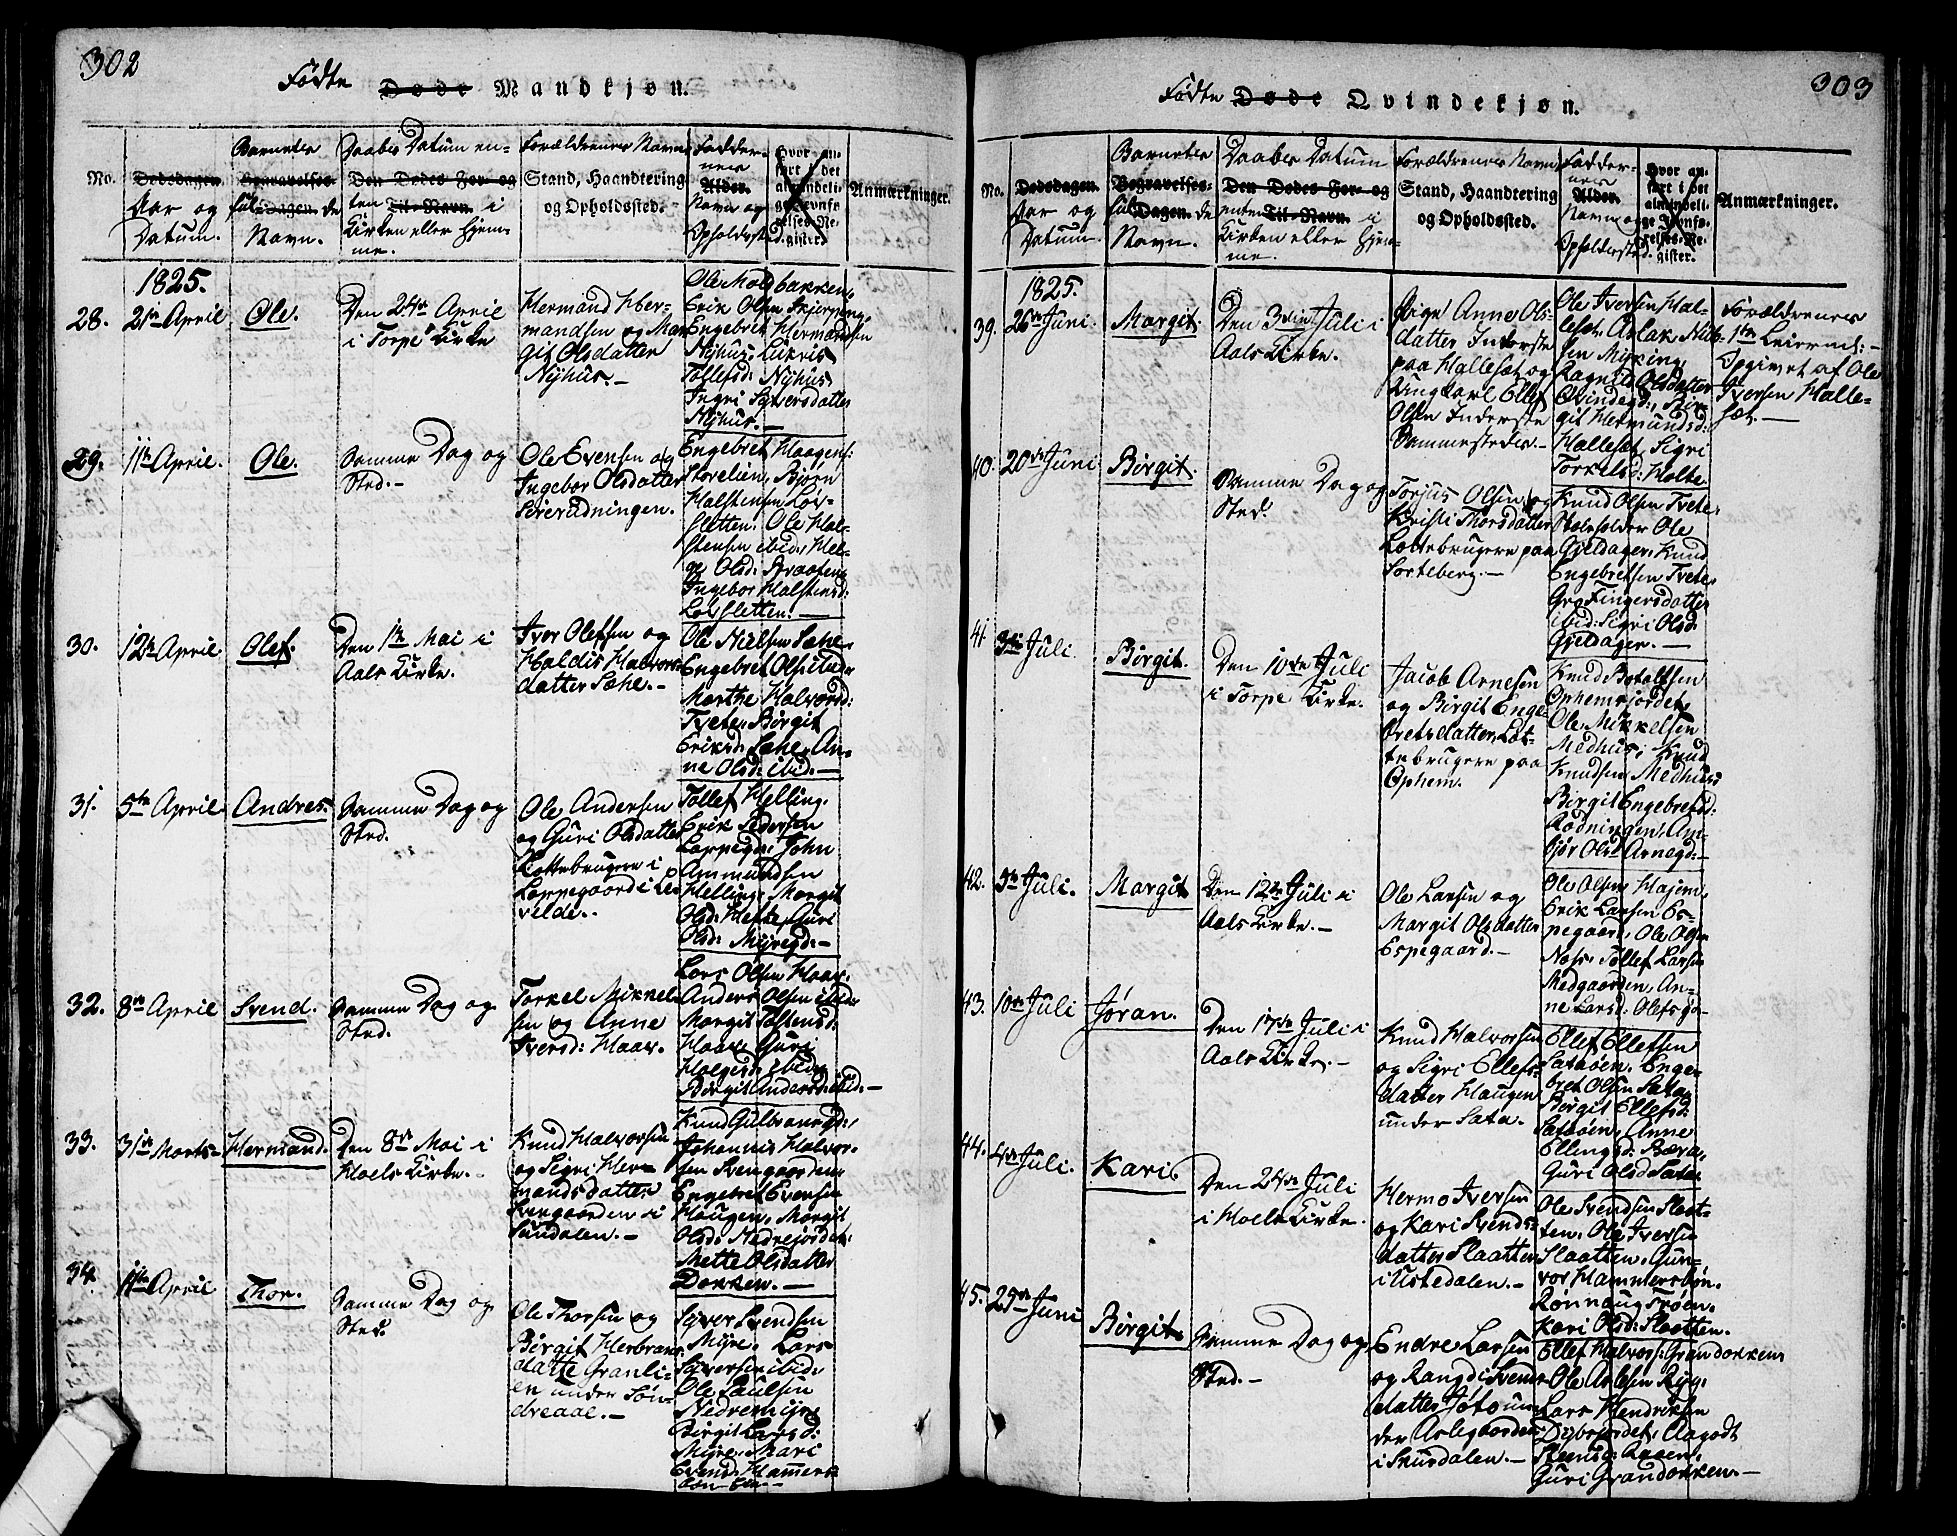 302
Födte Døde Mandkjøn.
No.
Dødsdagen.
Aar og
Datum.
Barnetes
Begravelses-
Dagen. de
Navn.
Daabes Datum en-
Den Dødes For- og
ten Til-Navn i
Kirken eller Hjem-
me.
Forældrenes Navn
Stand, Haandtering
og Opholdssted.
Fadder-
nes
Alder.
Navn og
Opholdssted.
Hvor an-
ført i det
almindeli-
ge Jevnfø-
relses-Re-
gister
Anmærkninger.
1825.
28.
21de April
Ole.
Den 24de April
i Torpe Kirke
Hermand Her-
mandsen og Mar
git Olsdatter
Nyhus.-
Ole Moebakken,
Erik Olsen
Engebret Hermansen
Nyhus, Liivis
Tollefsd: Nyhus
Ingri Syversdatter
Nyhus.-
29.
11te April.
Ole.
Samme Dag og
Sted.-
Ole Evensen og
Ingebor Olsdatter
Engebret Haagens:
Storelien, Bjørn
Halstensen
sletten. Ole Hal-
stensen ibid, Hel-
ge Olsd: Braaten
Ingebor Halstensd:
30.
12te April
Olef.
Den 1te Mai i
Aals Kirke.
Iver Olefsen og
Haldis Halvors-
datter Sehe.-
Ole Nielsen Sehe
Engebret Olsen
Marthe Halvorsd:
Tvete, Birgit
Eriksd: Sehe, An-
ne Olsd: ibid.-
31.
5te April
Andres.
Samme Dag og
Sted.
Ole Andersen
og Guri Olsdatter
Pottebrugere i
Loppegaard i Le-
velde.
Tollef Helling.
Erik Pedersen
Loppegd: John
Ammundsen
Helling, Margit
Olsd: Mette, Guri
Olsd: Myregd:-
32.
8de April
Svend.
Samme Dag og
Sted.
Torkel Mikkel-
sen og Anne
Iversd: Haav.
Lars Olsen Haav.
Anders Olsen ibid
Margit Tostensd:
Haav, Guri
Holgersd: ibid,
Birgit Andersd: ibid.-
33.
31te Marts-
Hermand.
Den 8de Mai i
Hoels Kirke.-
Knud Halvorsen
og Sigri Her-
mandsdatter
Svengaarden i
Sundalen.-
Knud Gulbransd:,
Johannis Halvor-
sen Svengaarden
Engebret Evensen
Haugen, Margit
Olsd: Nedrejordet
Mette Olsdatter
Dokken.-
34.
11te April
Thor.
Samme Dag og
Sted.
Ole Thorsen og
Birgit Herbrans-
datte Granli-
en under Søn-
dreaal.-
Syver Svendsen
Myre. Lars
Syversen ibid,
Ole Paulsen
Nedremyre
Birgit Larsd:
Myre, Mari
Evensd: Hammers-
303
Födte Døde Qvindekjøn.
No.
Dødsdagen.
Aar og
Datum.
Barnetes
Begravelses-
Dagen. de
Navn.
Daabes Datum
Den Dødes For- og
enten Til-Navn i
Kirken eller Hjem-
me.
Forældrenes Navn
Stand, Haandtering
og Opholdssted.
Fadder-
nes
Alder.
Navn og
Opholdssted.
Hvor an-
ført i det
almindeli-
ge Jevnfø-
relses-Re-
gister.
Anmærkninger.
1825.
39.
26de Juni.
Margit.
Den 3die Juli i
Aals Kirke.
Pige Anne Ols-
datter Inderste
paa Hallesæt og
Ungkarl Ellef
Olsen Inderste
Sammesteds.-
Ole Iversen Hal-
lesæt, Aslak Nub-
sen Myking,
Ragnild Olsdatter
Qvindegd:, Bir-
git Hermundsd:
Hallesæt, Sigri
Torkelsd: Holte.
Forældrenes
1te Leiermaal:-
Opgivet af Ole
Iversen Halle-
sæt.-
40.
20de Juni
Birgit.
Samme Dag og
Sted.
Torjus Olsen og
Kristi Thorsdatter
Lottebrugere paa
Sorteberg.-
Knud Olsen Tvete,
Ole
Gjeldager, Knud
Engebretsen Tvete,
Gro Fingersdatter
ibid: Sigri Olsd:
Gjeldager.-
41
3die Juli.
Birgit.
Den 10de Juli
i Torpe Kirke.
Jacob Arnesen
og Birgit Enge-
bretsdatter, Lot-
tebrugere paa
Ophem.
Knud Botolfsen
Ophemsjordet,
Ole Mikkelsen
Medhus, Knud
Knudsen Medhus
Birgit Engebretsd:
Rödningen, Am-
björ Olsd Arnegd:-
42.
3die Juli.
Margit
Den 12te Juli i
Aals Kirke.-
Ole Larsen og
Margit Olsdatter
Espegaard.-
Ole Olsen Hajem,
Erik Larsen Es-
pegaard, Ole Olsen
Næss, Tollef Larsen
Medgaarden, An-
ne Larsd: Olefsgd-
43.
10de Juli
Jøran.
Den 17de Juli i
Aals Kirke.-
Knud Halvorsen
og Sigri Ellefs-
datter Haugen
under Sata.
Ellef Ellefsen
Sataöen, Enge-
bret Olsen Sata,
Birgit Ellefsd:
Sataöen, Anne
Ellingsd: Bæra,
Guri Olsd Sata
44.
4de Juli.
Kari
Den 24de Juli
i Hoels Kirke.
Hermo Iversen
og Kari Svends-
datter Slaatten
i Ustedalen.-
Ole Svendsen Slaat-
ten, Ole Iversen
Slaatten, Gun-
vor Hammersbön.
Rönnaug Tröen.
Kari Olsd: Slaatten.
45.
25de Juni
Birgit.
Samme Dag og
Sted.-
Endre Larsen
og Rangdi Svens-
datter Jøto un-
der Aslegaarden
i Skurdalen.-
Ellef Halvors: Grandokken
Ole Aslesen Ryg,
Lars Hendriksen
Dybsjordet, Aagodt
Guri Grandokken.-